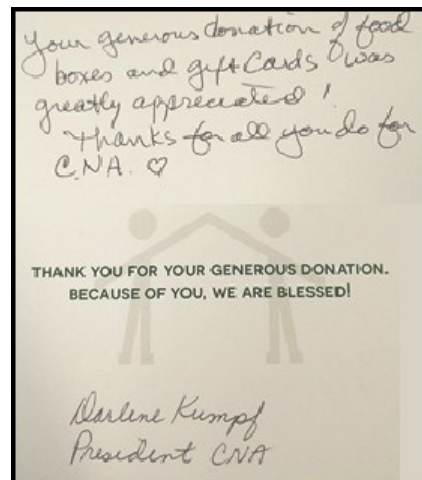 Your generous donation of food
boxes and gift Cards was
greatly appreciated!
Thanks for all you do for
C.N.A. ♡
THANK YOU FOR YOUR GENEROUS DONATION.
BECAUSE OF YOU, WE ARE BLESSED!
Darlene Kumpf
President CNA